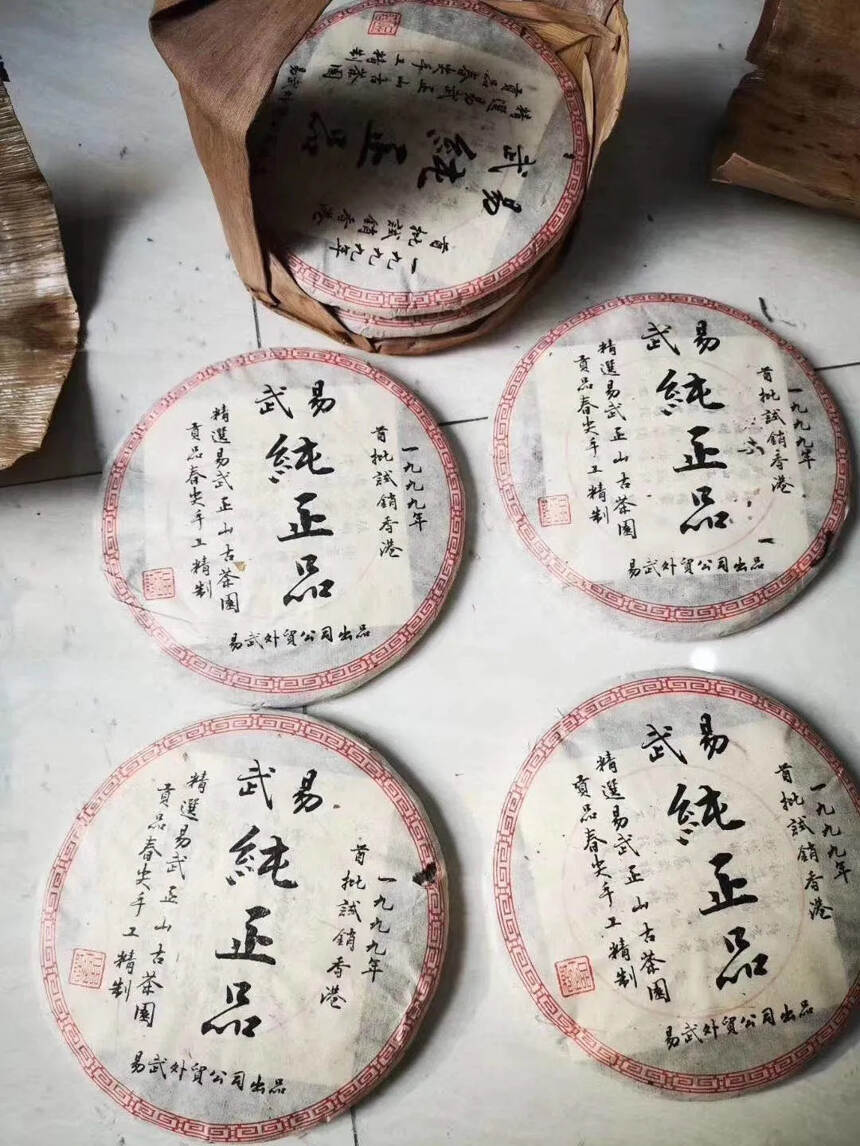 一九九九年
首批試銷香港
易武
純正品
精選易武正山古茶園
貢品春尖手工精制
易武外
一九九九年
首批試銷香港
易武
純正品
精選易武正山古茶園
貢品春尖手工精制
易武外貿公司出品
一九九九年
首批試銷香港
易武
純正品
精選易武正山古茶園
貢品春尖手工精制
易武外貿公司出品
一九九九年
首批試銷香港
易武
純正品
精選易武正山古茶園
貢品春尖手工精制
易武外貿公司出品
一九九九年
首批試銷香港
易武
純正品
精選易武正山古茶園
貢品春尖手工精制
易武外貿公司出品